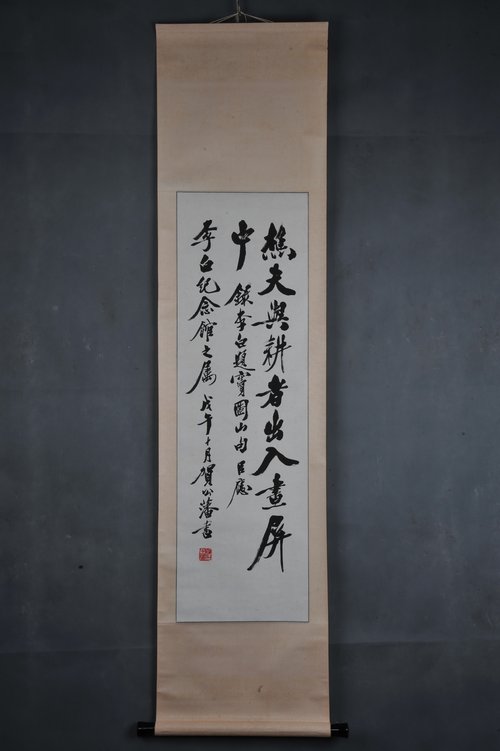 樵夫與耕者出入畫屏
中 錄李白題竇圌山句以應
李白紀念館之屬 戊午十月賀公藩書